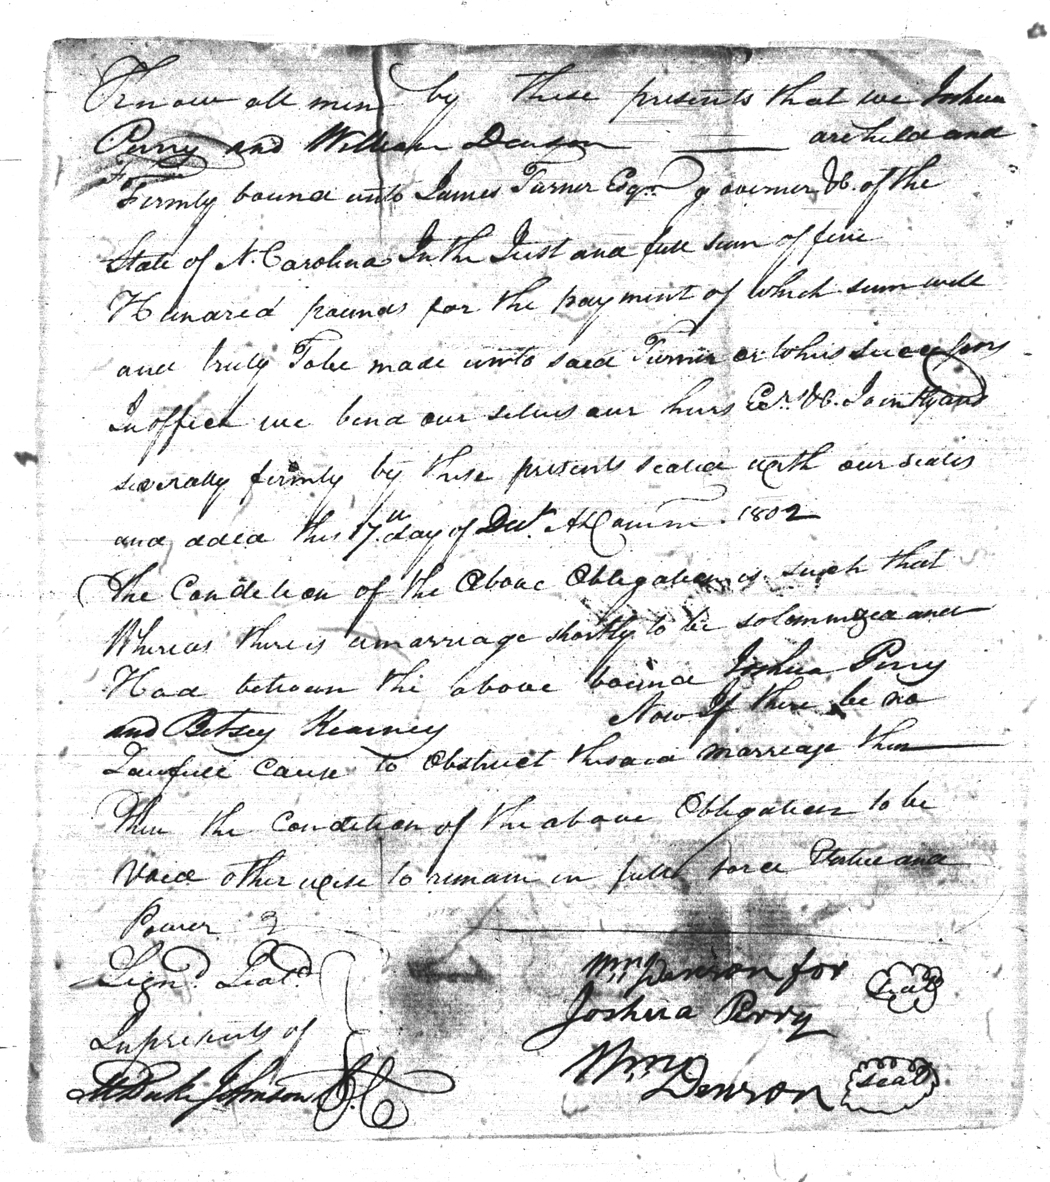 Know all men by these presents that we Joshua
Perry and William Denson are held and
Firmly bound unto James Turner Esqr. governer &C. of the
State of N. Carolina In the Just and full sum of five
Hundred pounds for the payment of which sum well
and truly To be made unto said Turner or to his successors
In office we bind our selves our hiers Ecr. &C. Jointly and
severally firmly by these presents sealed with our seales
and dated this 17th. day of Decr. ADomini. 1802
The Condition of the Above Obligation is such that
Whereas there is a marriage shortly to be solommized and
Had between the above bound Joshua Perry
and Betsey Kearney Now If there be no
Lawfull cause to Obstruct the said marriage then
Then the Condition of the above Obligation to be
Void other wise to remain in full force Virtue and
Power
Signd. Seald.
In presents of
Wm Denson for
Joshua Perry
Seal
Wm Denson
seal
M Duke Johnson